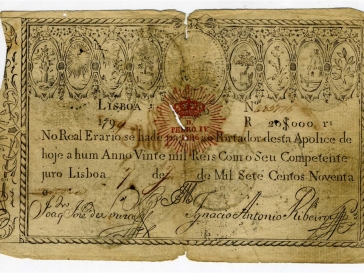 LISBOA
179
N.
R 20$000, rs
PEDRO IV
No Real Erario se hade pagar ao Portador desta Apolice de
hoje a hum Anno Vinte mil Reis Com o Seu Competente
juro Lisboa de de Mil Sete Centos Noventa
Ignacio Antonio Ribeiro